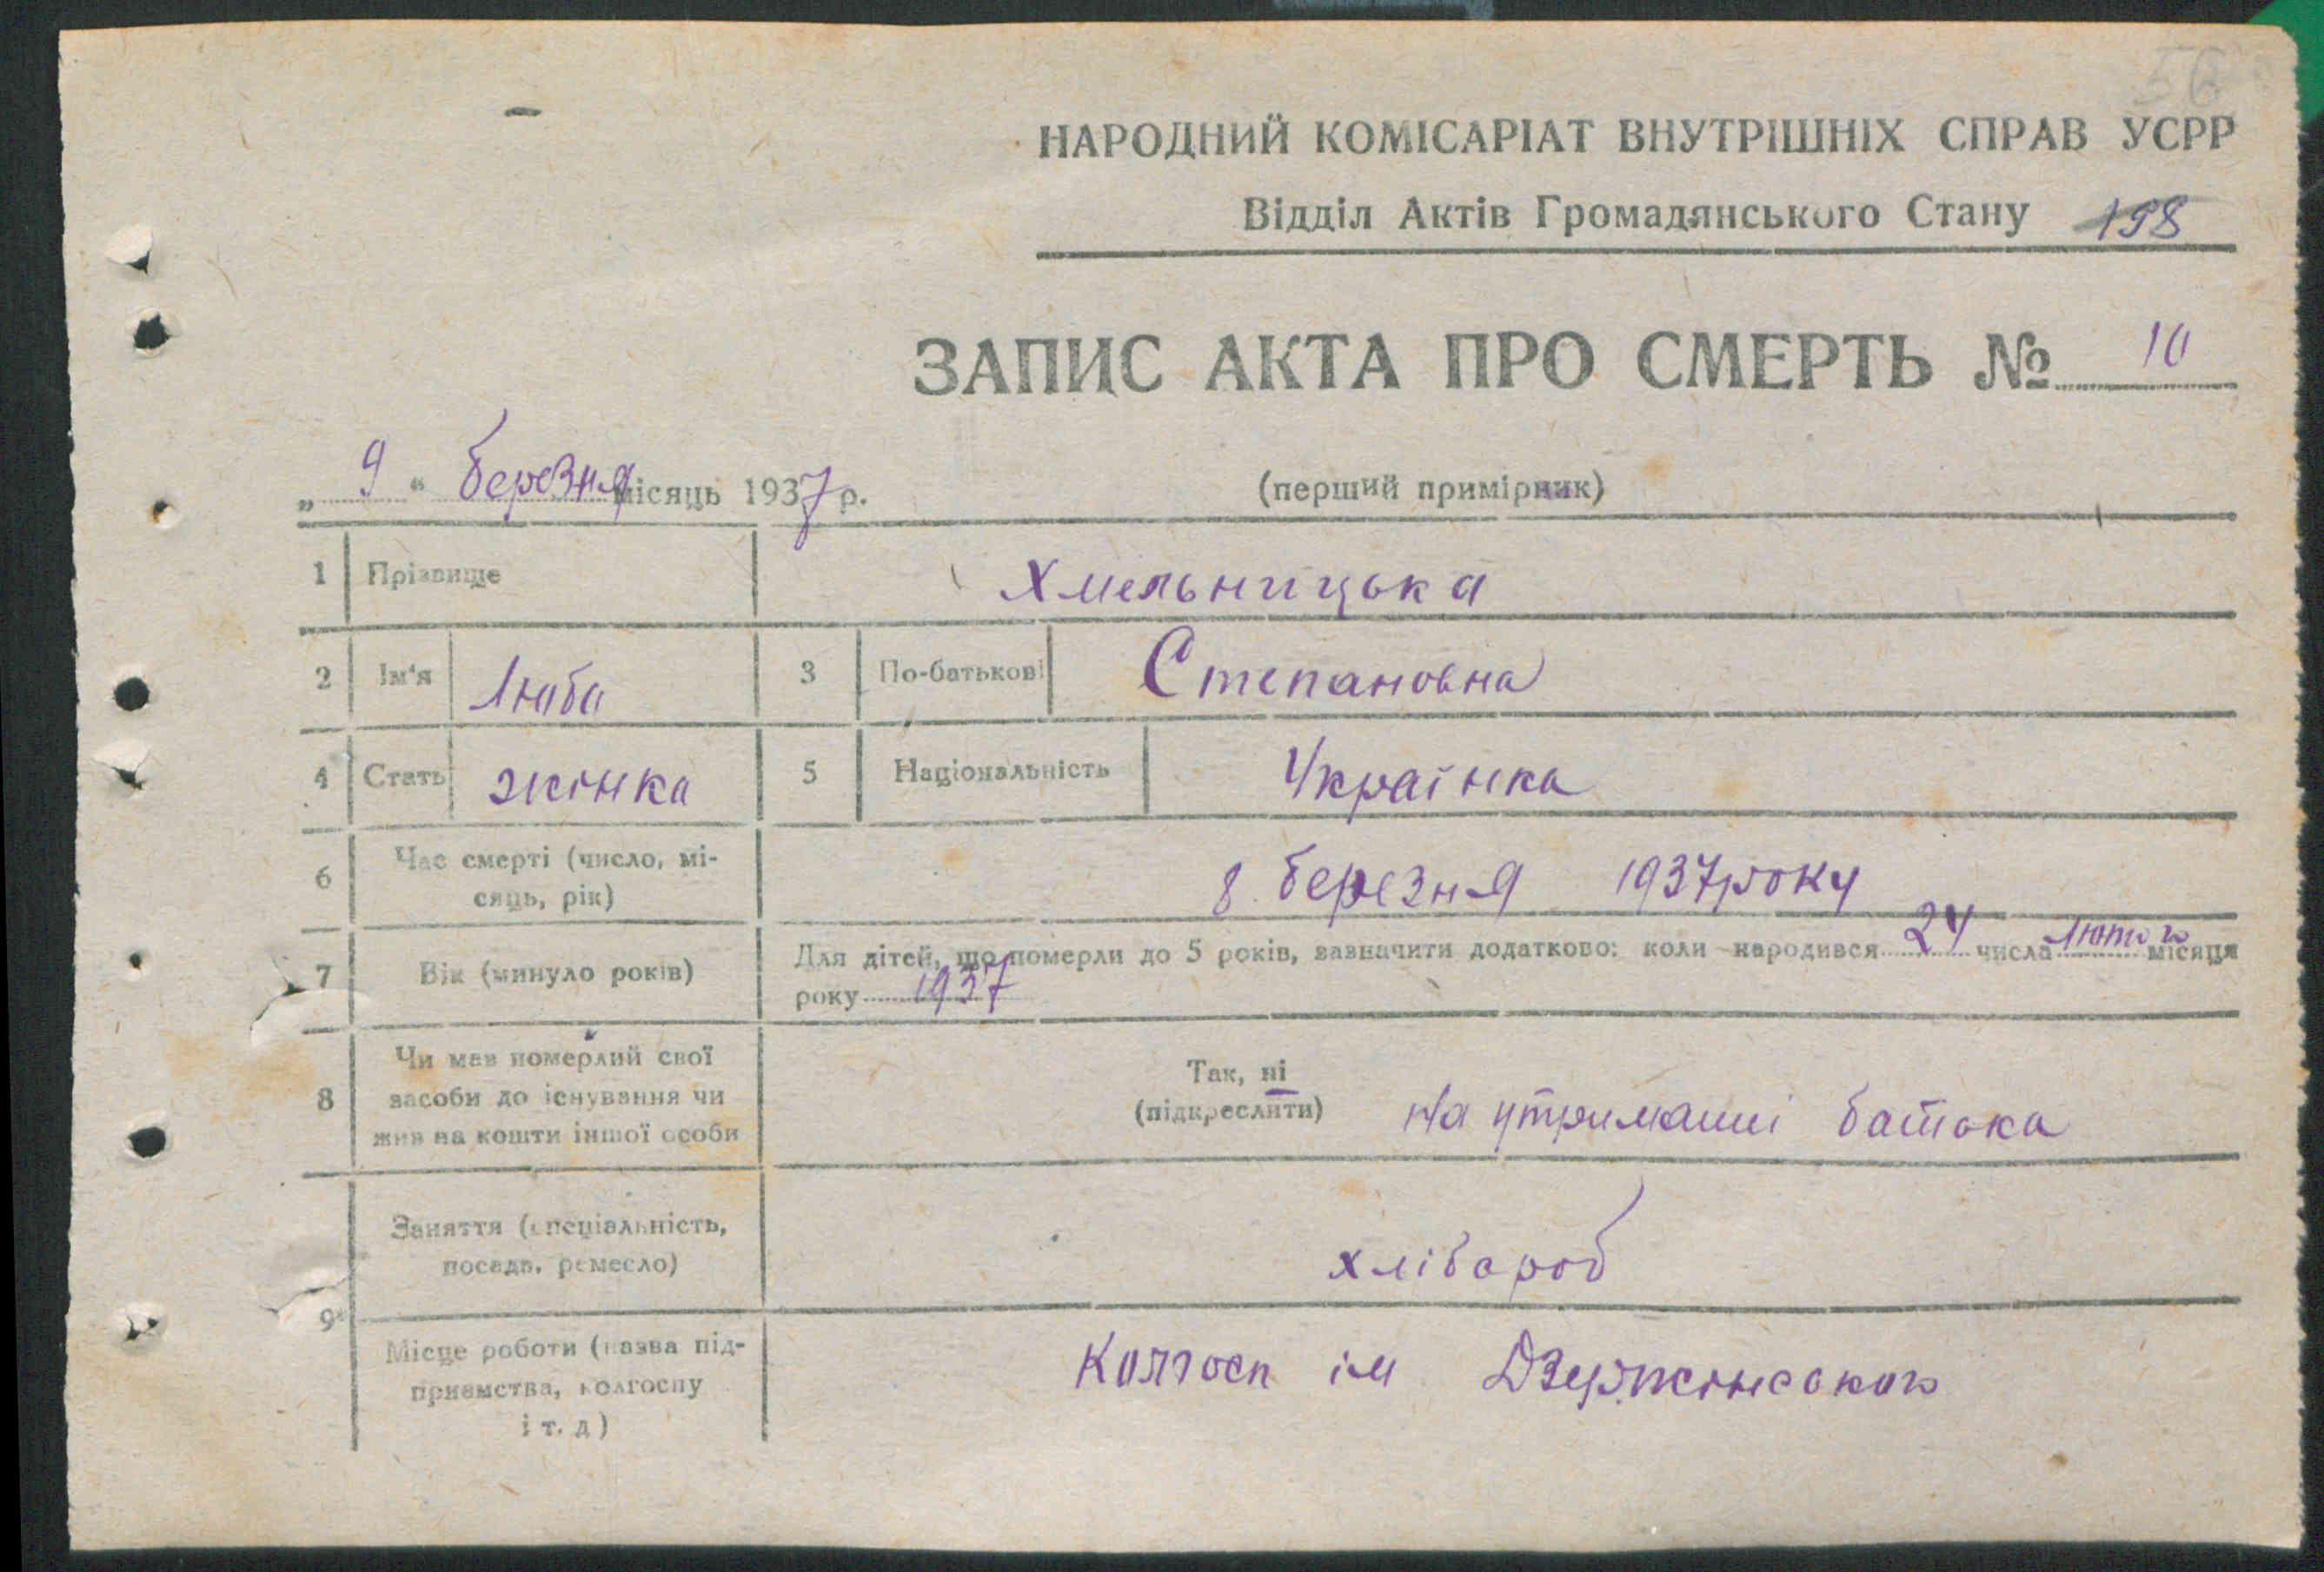 56
НАРОДНИЙ КОМІСАРІАТ ВНУТРІШНІХ СПРАВ УСРР
Відділ Актів Громадянського Стану 198
ЗАПИС АКТА ПРО СМЕРТЬ № 10
„ 9 “ березня місяць 1937 р. (перший примірник)
1 Прізвище Хмельницька
2 Ім'я Люба 3 По-батькові Степановна
4 Стать жінка 5 Національність Українка
6 Час смерті (число, мі-
сяць, рік) 8 березня 1937 року
7 Вік (минуло років) Для дітей, що померли до 5 років, зазначити додатково: коли народився 24 числа лютого місяця
року 1937
8 Чи мав померлий свої
засоби до існування чи
жив на кошти іншої особи Так, ні
(підкреслити) На утриманні батька
9 Заняття (спеціальність,
посада, ремесло) хлібороб
Місце роботи (назва під-
приємства, колгоспу
і т. д) Колгосп ім Дзержинського